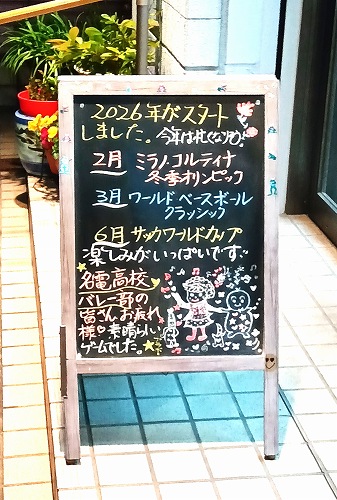 2026年がスタート
しました。今年は忙しくなりそう!
2月 ミラノコルティナ
冬季オリンピック
3月 ワールドベースボール
クラッシック
6月 サッカワールドカップ
楽しみがいっぱいです。
名電高校
バレー部の
皆さんお疲れ
様♡素晴らしい
ゲームでした。